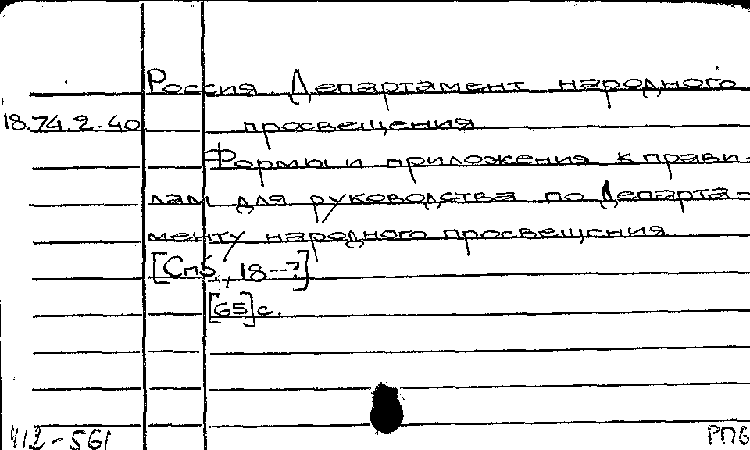 Россия. Департамент народного
18.74.2.40 просвещения
Формы и приложения к прави-
лам для руководства по Департа-
менту народного просвещения
[Спб., 18--?]
[65] с.
412-561 РПБ